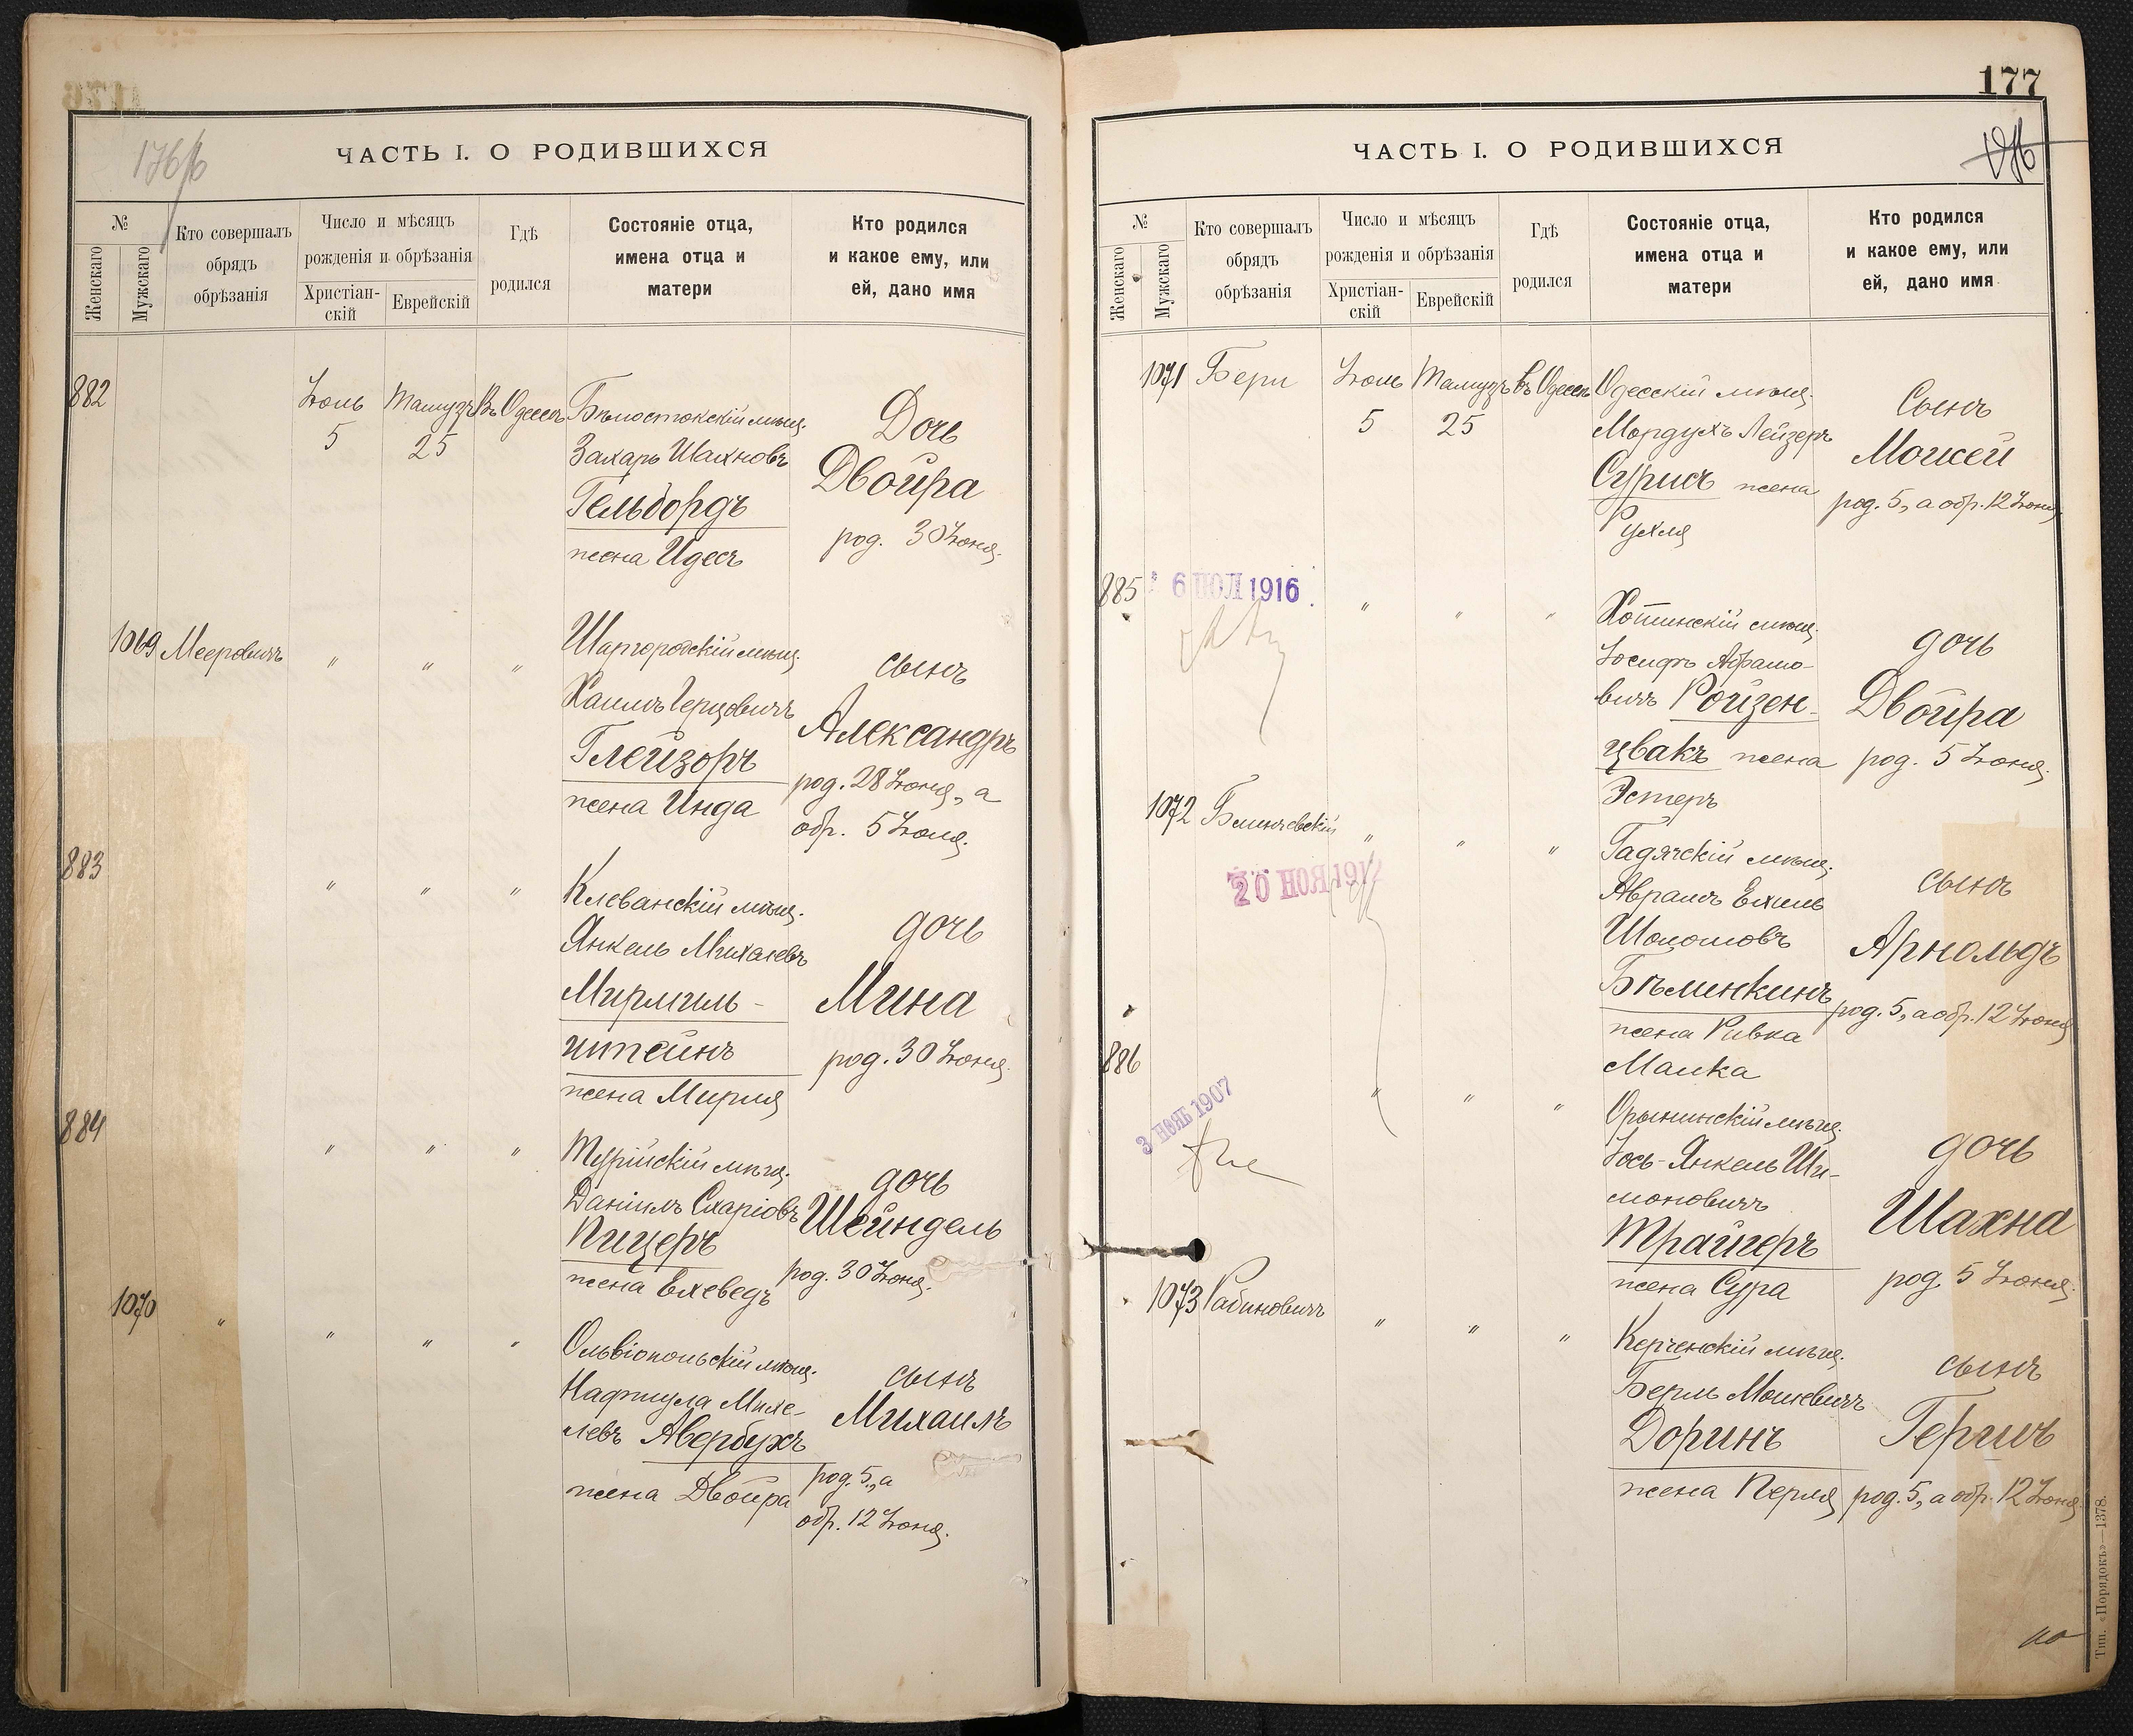 176
ЧАСТЬ I. О РОДИВШИХСЯ
№
Женскаго
Мужскаго
Кто совершалъ
обрядъ
обрѣзанія
Число и мѣсяцъ
рожденія и обрѣзанія
Христіан-
скій
Еврейскій
Гдѣ
родился
Состояніе отца,
имена отца и
матери
Кто родился
и какое ему, или
ей, дано имя
882
Іюль
5
Тамузъ
25
Въ Одессѣ
Бѣлостокскій мѣщ.
Захаръ Шахновъ
Гельбордъ
жена Идесъ
Дочь
Двойра
род. 30 Іюня.
1069 Мееровичъ " " "
Шаргородскій мѣщ.
Хаимъ Герцовичъ
Глейзоръ
жена Инда
сынъ
Александръ
род. 28 Іюня, а
обр. 5 Іюля.
883 " " "
Клеванскій мѣщ.
Янкель Михалевъ
Мирмиль-
штейнъ
жена Мирля
дочь
Мина
род. 30 Іюня.
884 " " "
Турійскій мѣщ.
Даніилъ Схаріовъ
Пицеръ
жена Ехеведъ
дочь
Шейндель
род. 30 Іюня.
1070 " " " "
Ольвіопольскій мѣщ.
Нафтула Михе-
левъ Авербухъ
жена Двойра
сынъ
Михаилъ
род. 5, а
обр. 12 Іюня.
177
ЧАСТЬ I. О РОДИВШИХСЯ
№
Женскаго
Мужскаго
Кто совершалъ
обрядъ
обрѣзанія
Число и мѣсяцъ
рожденія и обрѣзанія
Христіан-
скій
Еврейскій
Гдѣ
родился
Состояніе отца,
имена отца и
матери
Кто родился
и какое ему, или
ей, дано имя
1071 Бери
Іюль
5
Тамузъ
25
Въ Одессѣ
Одесскій мѣщ.
Мордухъ Лейзеръ
Сурисъ жена
Рухля
Сынъ
Моисей
род. 5, а обр. 12 Іюня
885
6 ІЮЛ 1916
" " "
Хотинскій мѣщ.
Іосифъ Абрамо-
вичъ Ройзен-
цвакъ жена
Эстеръ
дочь
Двойра
род. 5 Іюня.
1072 " " "
20 НОЯ 191
Гадячскій мѣщ.
Аврамъ Ехиль
Шоломовъ
Бѣлинкинъ
жена Ривка
Малка
сынъ
Арнольдъ
род. 5, а обр. 12 Іюня
886
3 НОЯБ 1907
" " "
Орынинскій мѣщ.
Іось-Янкель Ши-
моновичъ
Трайгеръ
жена Сура
дочь
Шахна
род. 5 Іюня.
1073 Рабиновичъ " " "
Керченскій мѣщ.
Берль Мошевичъ
Доринъ
жена Перля
сынъ
Гершъ
род. 5, а обр. 12 Іюня
Тип. «Порядокъ»—1378.